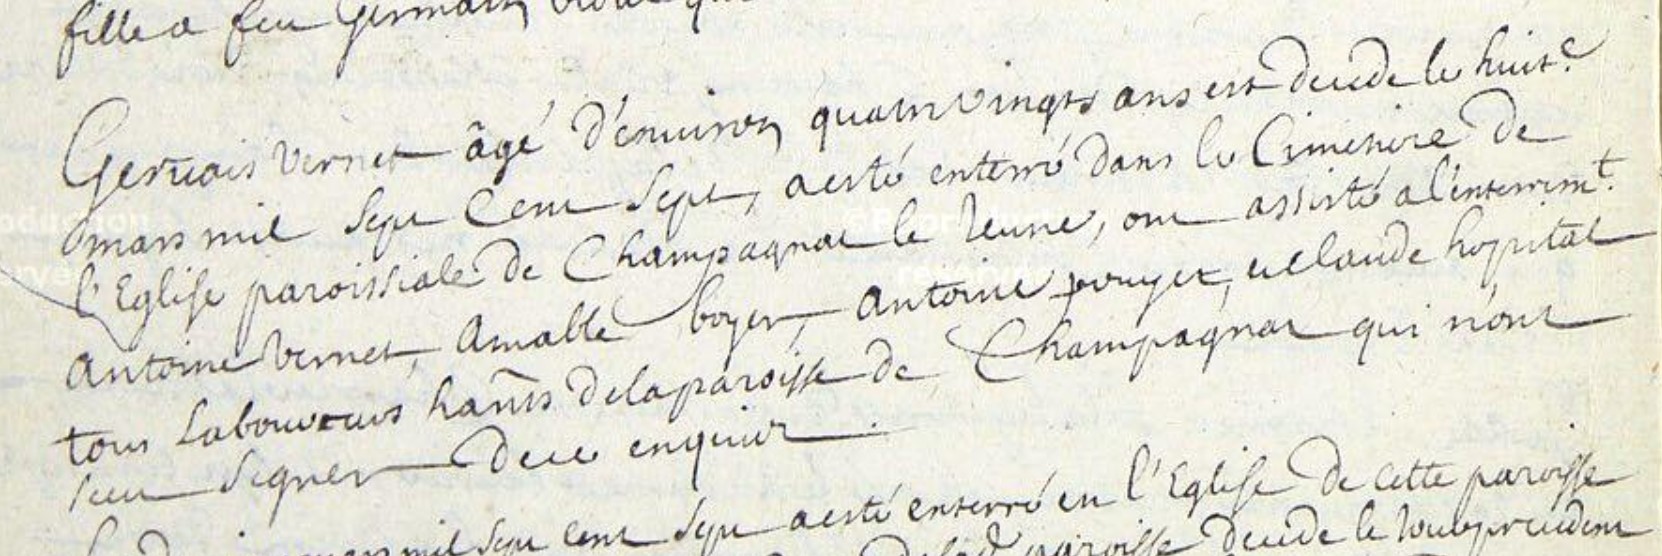 fille a feu Germain
Gervais Vernet âgé d'environ quatrevingts ans est decede le huit.e
mars mil sept Cent Sept, a esté enterré dans le Cimetiere de
l'Eglise paroissiale de Champagnat le Jeune, ont assisté a l'enterrem.t
Antoine Vernet, Amable boyer, Antoine pouyet, et Claude hopital
tous Laboureurs hañts de la paroisse de Champagnat qui n'ont
sceu signer de ce enquis
mil sept cent sept a esté enterré en l'Eglise de cette paroisse
paroisse decede le Jour precedent